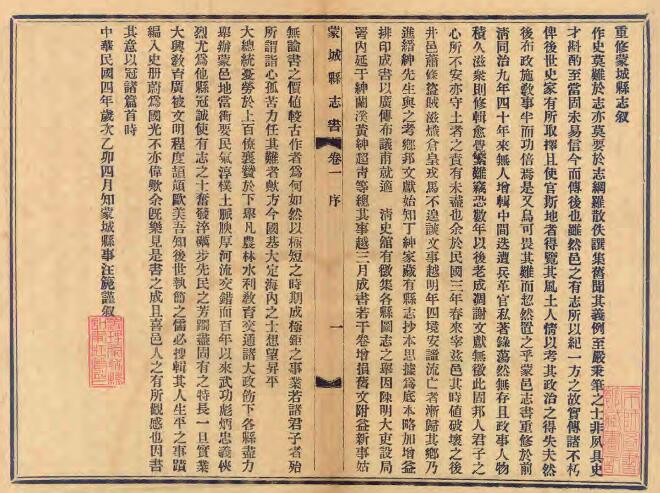 重修蒙城縣志叙
作史莫難於志亦莫要於志網羅散佚譔集舊聞其義例至嚴秉筆之士非夙具史
才斟酌至當固未易信今而傳後也雖然邑之有志所以紀一方之故實傳諸不朽
俾後世史家有所取擇且使官斯地者得覽其風土人情以考其政治之得失夫然
後布政施敎事半而功倍焉是又烏可畏其難而恝然置之乎蒙邑志書重修於前
清同治九年四十年來無人增輯中間迭遭兵革官私著錄蕩然無存且政事人物
積久滋衆則修輯愈覺繁難竊恐數年以後老成凋謝文獻無徵此固邦人君子之
心所不安亦守土者之責有未盡也余於民國三年春來宰茲邑其時値破壞之後
井邑蕭條盜賊滋熾倉皇戎馬不遑談文事越明年四境安謐流亡者漸歸其鄕乃
進縉紳先生與之考鄕邦文獻始知丁紳家藏有縣志抄本思據爲底本略加增益
排印成書以廣傳布議甫就適 清史館有徵集各縣圖志之舉因陳明大吏設局
署內延于紳蘭渼黃紳超靑等總其事越三月成書若干卷增損舊文附益新事姑
蒙城縣志書 卷一 序 一
無論書之價値較古作者爲何如然以極短之時期成極鉅之事業若諸君子者殆
所謂詣心孤苦力任其難者歟方今國基大定海內之士想望昇平
大總統憂勞於上百僚襄贊於下舉凡農林水利敎育交通諸大政飭下各縣盡力
舉辦蒙邑地當衝要民氣淳樸土脈腴厚河流交錯而百年以來武功彪炳忠義俠
烈尤爲他縣冠誠使有志之士奮發淬礪步先民之芳躅盡固有之特長一旦實業
大興敎育廣被文明程度頡頏歐美吾知後世執簡之儒必搜輯其人生平之事蹟
編入史册蔚爲國光不亦偉歟余旣樂見是書之成且喜邑人之有所觀感也因書
其意以冠諸篇首時
中華民國四年歲次乙卯四月知蒙城縣事汪箎謹叙